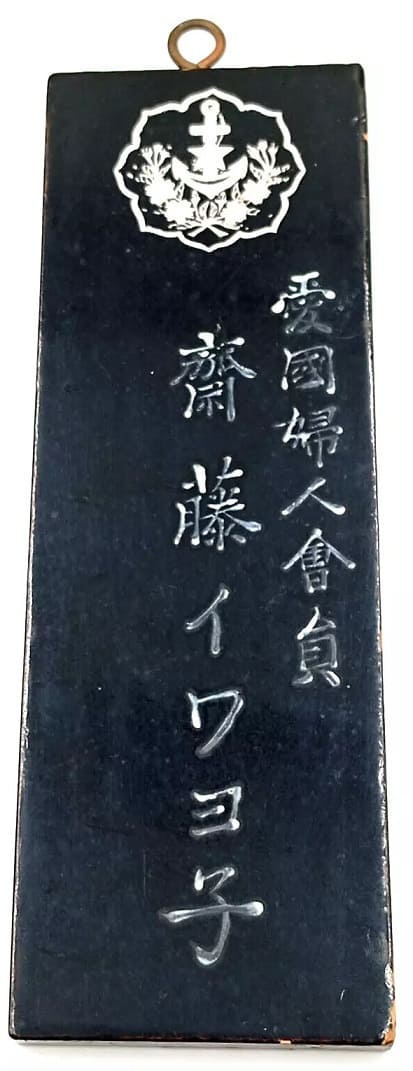 愛國婦人會員
齋藤イワヨ子